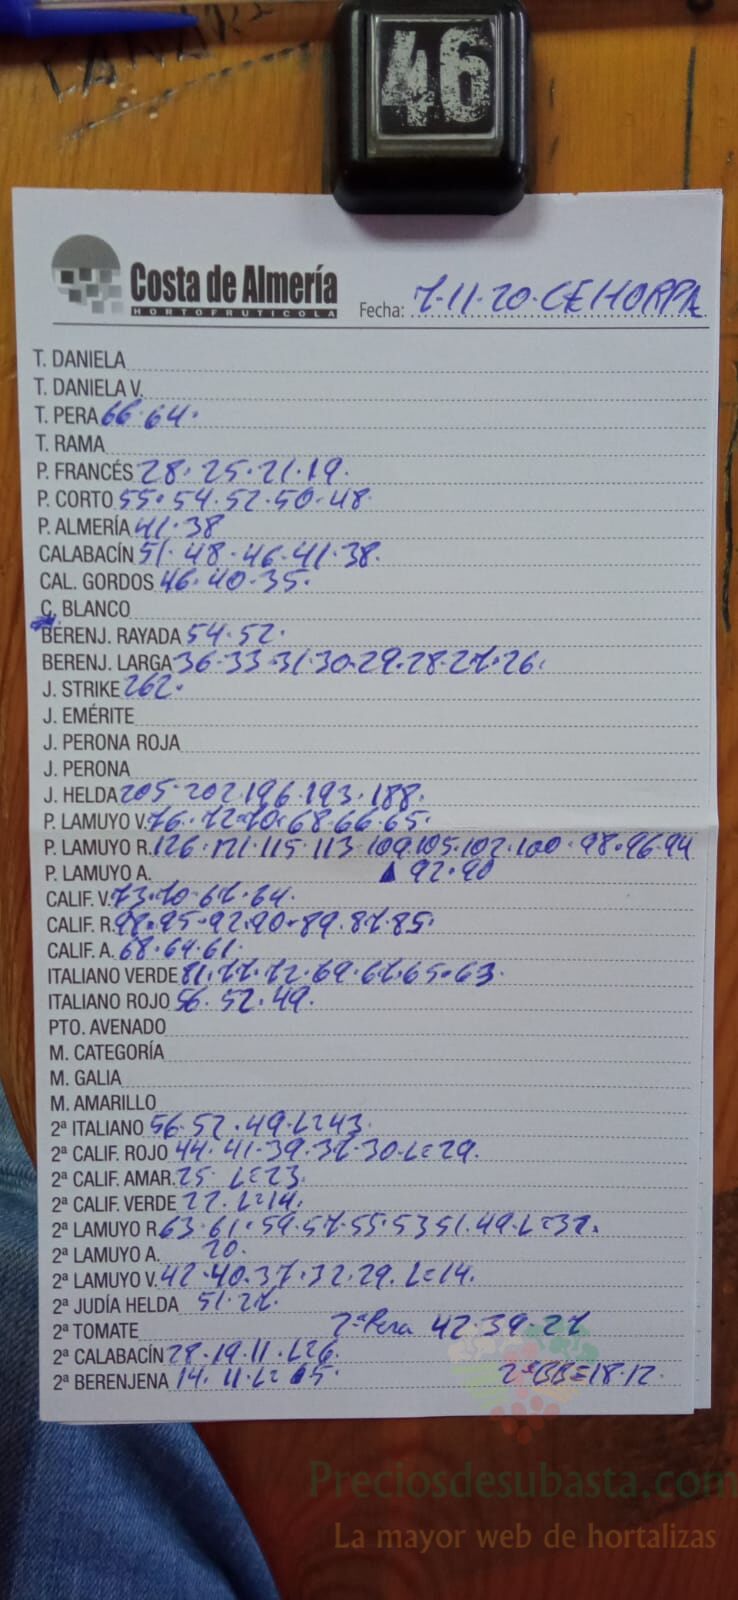 LANA
46
Costa de Almería
HORTOFRUTICOLA
Fecha: 7.11.20.CEHORPA
T. DANIELA
T. DANIELA V.
T. PERA 66.64.
T. RAMA
P. FRANCÉS 28.25.21.19.
P. CORTO 55.54.52.50.48
P. ALMERÍA 41.38
CALABACÍN 51.48.46.41.38.
CAL. GORDOS 46.40.35.
C. BLANCO
BERENJ. RAYADA 54.52.
BERENJ. LARGA 36.33.31.30.29.28.27.26.
J. STRIKE 262.
J. EMÉRITE
J. PERONA ROJA
J. PERONA
J. HELDA 205.202.196.193.188.
P. LAMUYO V. 76.72.70.68.66.65.
P. LAMUYO R. 126.121.115.113.109.105.102.100.98.96.94
P. LAMUYO A. 92.90
CALIF. V. 73.70.67.64.
CALIF. R. 98.95.92.90.89.87.85.
CALIF. A. 68.64.61.
ITALIANO VERDE 81.77.72.69.67.65.63.
ITALIANO ROJO 56.52.49.
PTO. AVENADO
M. CATEGORÍA
M. GALIA
M. AMARILLO
2ª ITALIANO 56.52.49.L=43.
2ª CALIF. ROJO 44.41.39.37.30.L=29.
2ª CALIF. AMAR. 25 L=23.
2ª CALIF. VERDE 22. L=14.
2ª LAMUYO R. 63.61.59.57.55.53.51.49.L=37.
2ª LAMUYO A. 20.
2ª LAMUYO V. 42.40.37.32.29. L=14.
2ª JUDÍA HELDA 51.27.
2ª TOMATE 2ª Pera 42.39.27
2ª CALABACÍN 28.19.11.L=6.
2ª BERENJENA 14.11.L=5. 2ªBB=18.12.
Preciosdesubasta.com
La mayor web de hortalizas